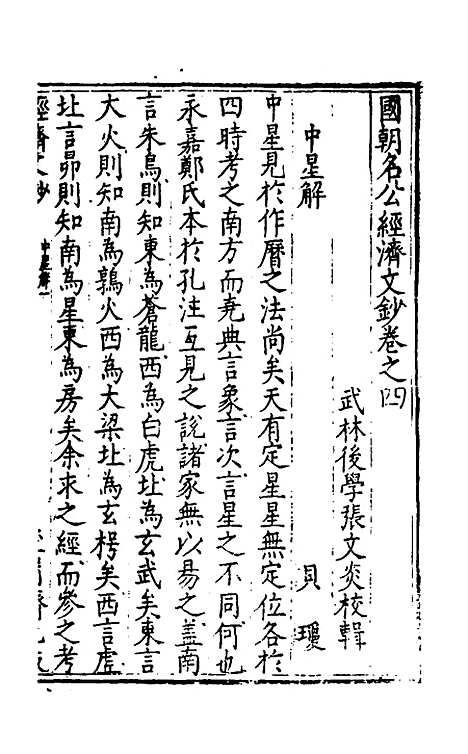 國朝名公經濟文鈔卷之四
武林後學張文炎校輯
中星解 貝瓊
中星見於作曆之法尚矣天有定星星無定位各於
四時考之南方而堯典言象言次言星之不同何也
永嘉鄭氏本於孔注互見之說諸家無以易之蓋南
言朱鳥則知東為蒼龍西為白虎北為玄武矣東言
大火則知南為鶉火西為大梁北為玄枵矣西言虛
北言昴則知南為星東為房矣余求之經而參之考
經濟文鈔 中星解一